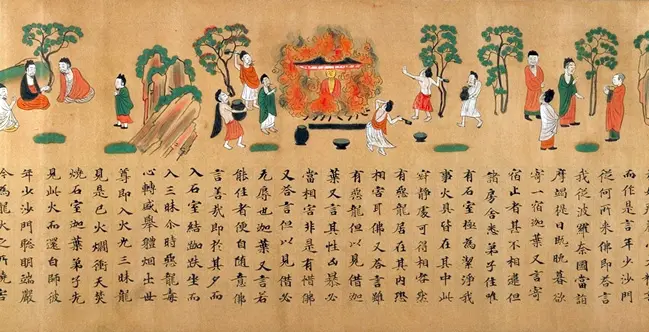 而作是言年少沙門
從何所來佛即荅言
我從波羅奈國當詣
摩竭提日既晚暮欲
寄一宿迦葉又言寄
宿止者甚不相違但
諸房舍悉弟子住唯
有石室極為潔淨我
事火具皆在其中此
寂靜處可得相容然
有惡龍居在其內恐
相害耳佛又荅言雖
有惡龍但以見借迦
葉又言其性凶暴必
當相害非是有惜佛
又荅言但以見借必
無辱也迦葉又言若
能住者便自隨意佛
言善哉即於其夕而
入石室結跏趺坐而
入三昧尒時惡龍毒
心轉盛舉體烟出世
尊即入火光三昧龍
見是已火爓衝天焚
燒石室迦葉弟子先
見此火而還白師彼
年少沙門聰明端嚴
今為龍火之所燒害